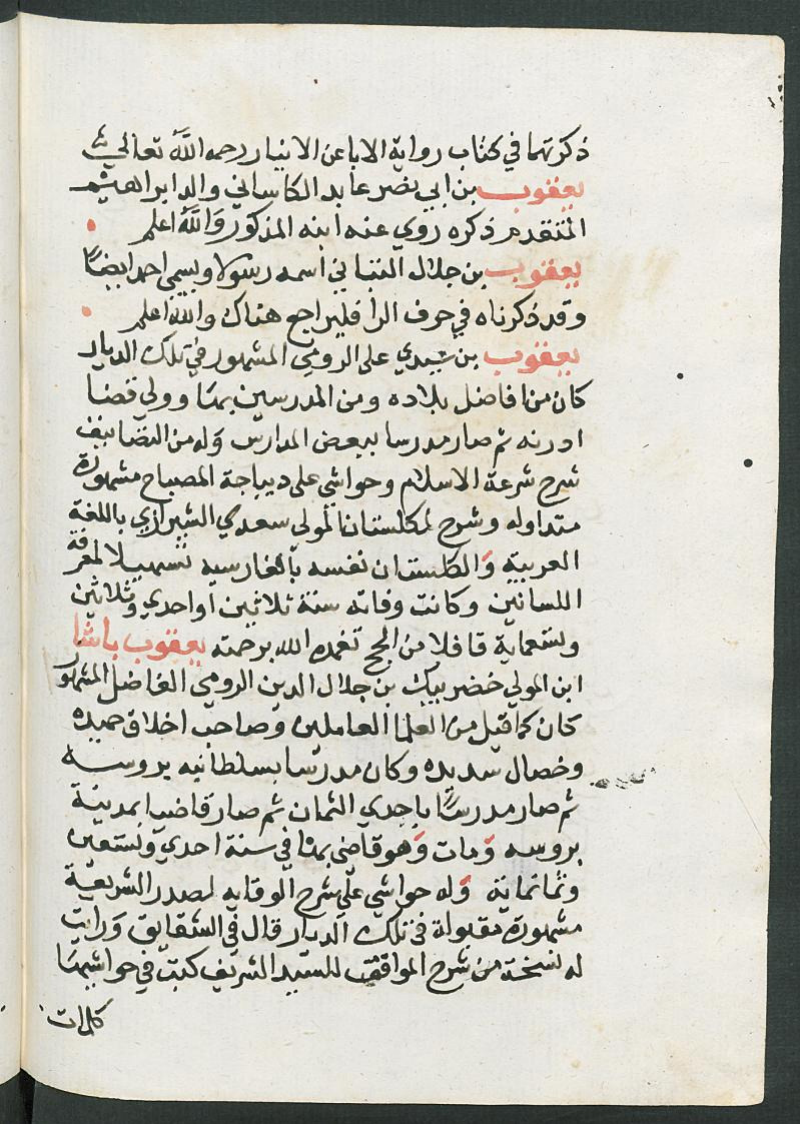 ذكرتهما في كتاب رواية الابا عن الابنا رحمه الله تعالى
يعقوب بن ابي نصر عابد الكاساني والد ابراهيم
المتقدم ذكره روي عنه ابنه المذكور والله اعلم
يعقوب بن جلال التباني اسمه رسولا ويسمى احمد ايضا
وقد ذكرناه في حرف الرا فليراجع هناك والله اعلم
يعقوب بن سيدي على الرومي المشهور في تلك الديار
كان من افاضل بلاده ومن المدرسين بها وولي قضا
ادرنه ثم صار مدرسا ببعض المدارس وله من التصانيف
شرح شرعة الاسلام وحواشي على ديباجة المصباح مشهورة
متداوله وشرح لكلستان المولى سعدي الشيرازي باللغة
العربية والكلستان نفسه بالفارسيه تسهيلا لمعرفة
اللسانين وكانت وفاته سنة ثلاثين او احدي وثلاثين
وتسعماية قافلا من الحج تغمده الله برحمته يعقوب باشا
ابن المولي خضر بيك بن جلال الدين الرومي الفاضل المشهور
كان كما قيل من العلما العاملين وصاحب اخلاق حميده
وخصال سديده وكان مدرسا بسلطانيه بروسه
ثم صار مدرسا باحدي الثمان ثم صار قاضيا بمدينة
بروسه ومات وهو قاضى بها في سنة احدي وتسعين
وثمانماية وله حواشي علي شرح الوقايه لصدر الشريعة
مشهورة مقبولة في تلك الديار قال في الشقايق ورايت
له نسخة من شرح المواقف للسيد الشريف كتب في حواشيها
كلمات